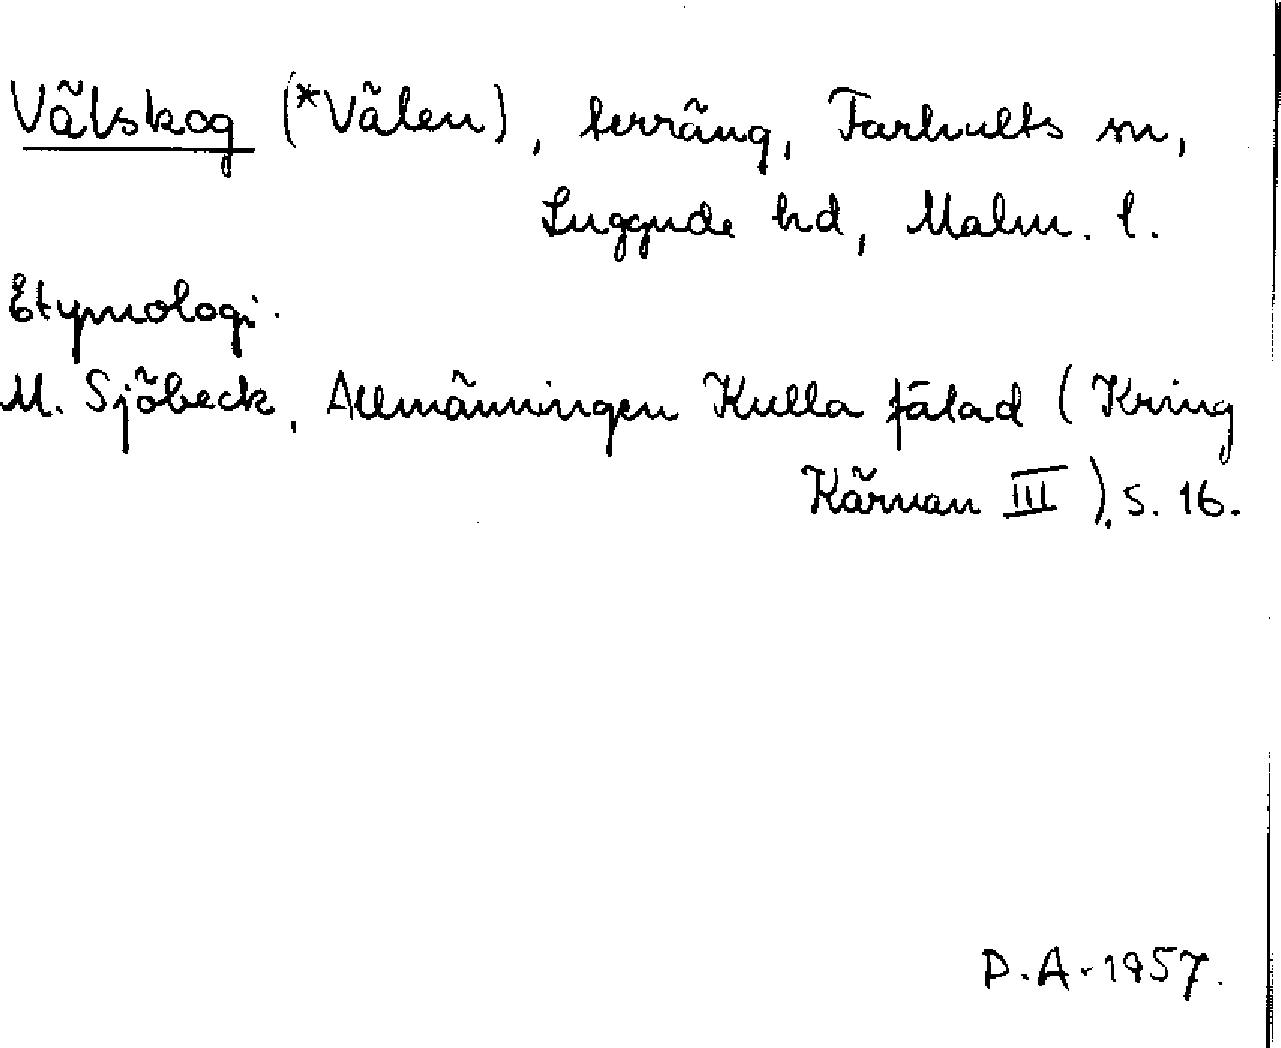 Välskog (*Välen), terräng, Farhults sn,
Luggude hd, Malm. l.
Etymologi.
M. Sjöbeck, Allmänningen Kulla fälad (Kring
Kärnan III), s. 16.
D.A. 1957.